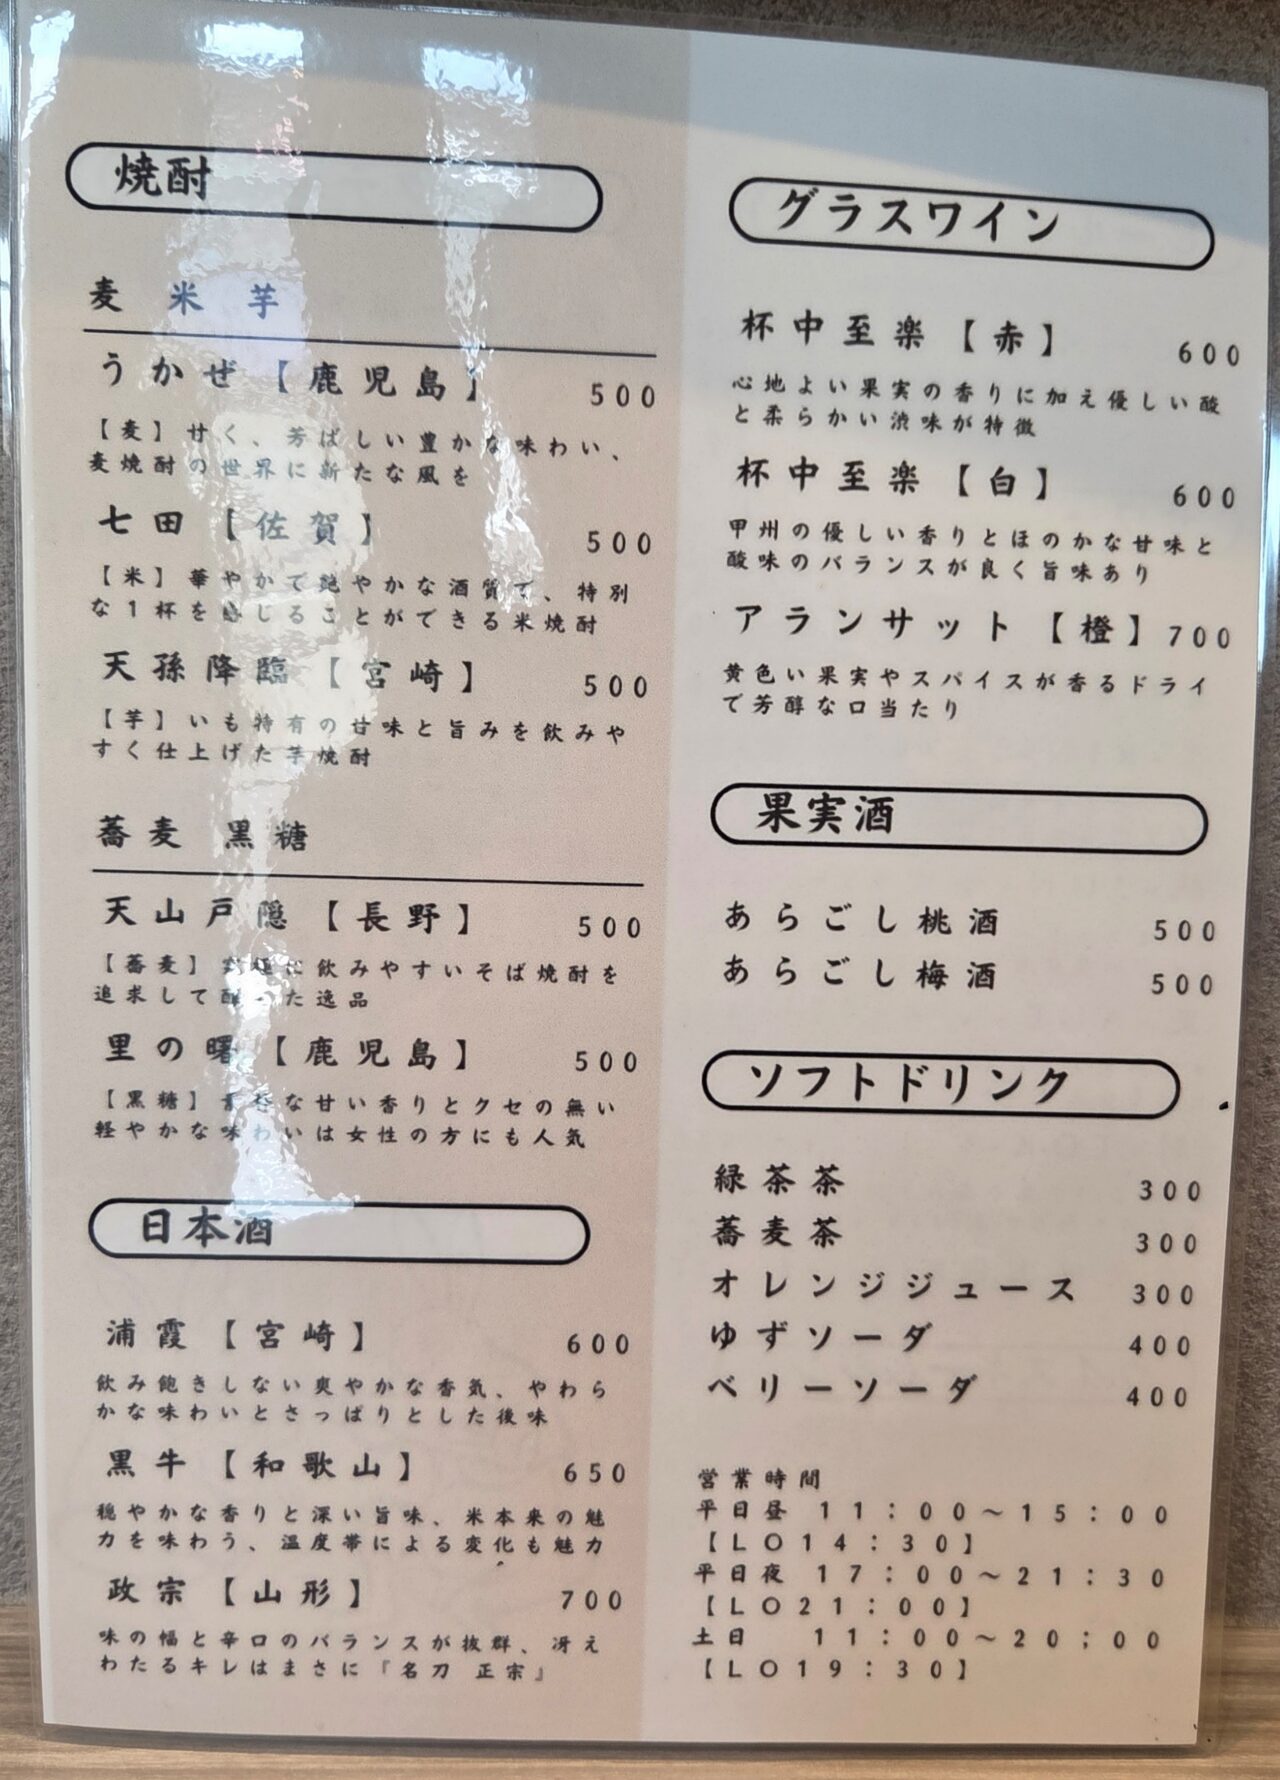 焼酎
麦 米 芋
うかぜ【鹿児島】 500
【麦】甘く、芳ばしい豊かな味わい、
麦焼酎の世界に新たな風を
七田【佐賀】 500
【米】華やかで艶やかな酒質で、特別
な1杯を感じることができる米焼酎
天孫降臨【宮崎】 500
【芋】いも特有の甘味と旨みを飲みや
すく仕上げた芋焼酎
蕎麦 黒糖
天山戸隠【長野】 500
【蕎麦】 飲みやすいそば焼酎を
追求して醸した逸品
里の曙【鹿児島】 500
【黒糖】 な甘い香りとクセの無い
軽やかな味わいは女性の方にも人気
日本酒
浦霞【宮崎】 600
飲み飽きしない爽やかな香気、やわら
かな味わいとさっぱりとした後味
黒牛【和歌山】 650
穏やかな香りと深い旨味、米本来の魅
力を味わう、温度帯による変化も魅力
政宗【山形】 700
味の幅と辛口のバランスが抜群、冴え
わたるキレはまさに『名刀 正宗』
グラスワイン
杯中至楽【赤】 600
心地よい果実の香りに加え優しい酸
と柔らかい渋味が特徴
杯中至楽【白】 600
甲州の優しい香りとほのかな甘味と
酸味のバランスが良く旨味あり
アランサット【橙】700
黄色い果実やスパイスが香るドライ
で芳醇な口当たり
果実酒
あらごし桃酒 500
あらごし梅酒 500
ソフトドリンク
緑茶茶 300
蕎麦茶 300
オレンジジュース 300
ゆずソーダ 400
ベリーソーダ 400
営業時間
平日昼 11:00～15:00
【LO14:30】
平日夜 17:00～21:30
【LO21:00】
土日 11:00～20;00
【LO19:30】